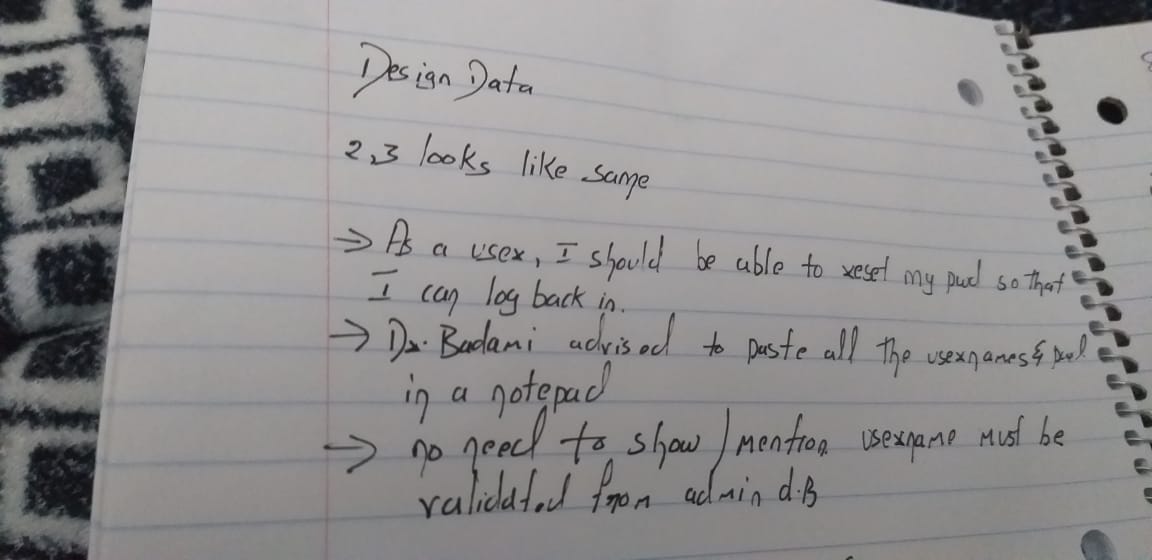 Design Data
2,3 looks like same
→ As a user, I should be able to reset my pwd so that
I can log back in.
→ Dr. Badami advised to paste all the usernames & pwd
in a notepad
→ no need to show / mention username must be
validated from admin d.B